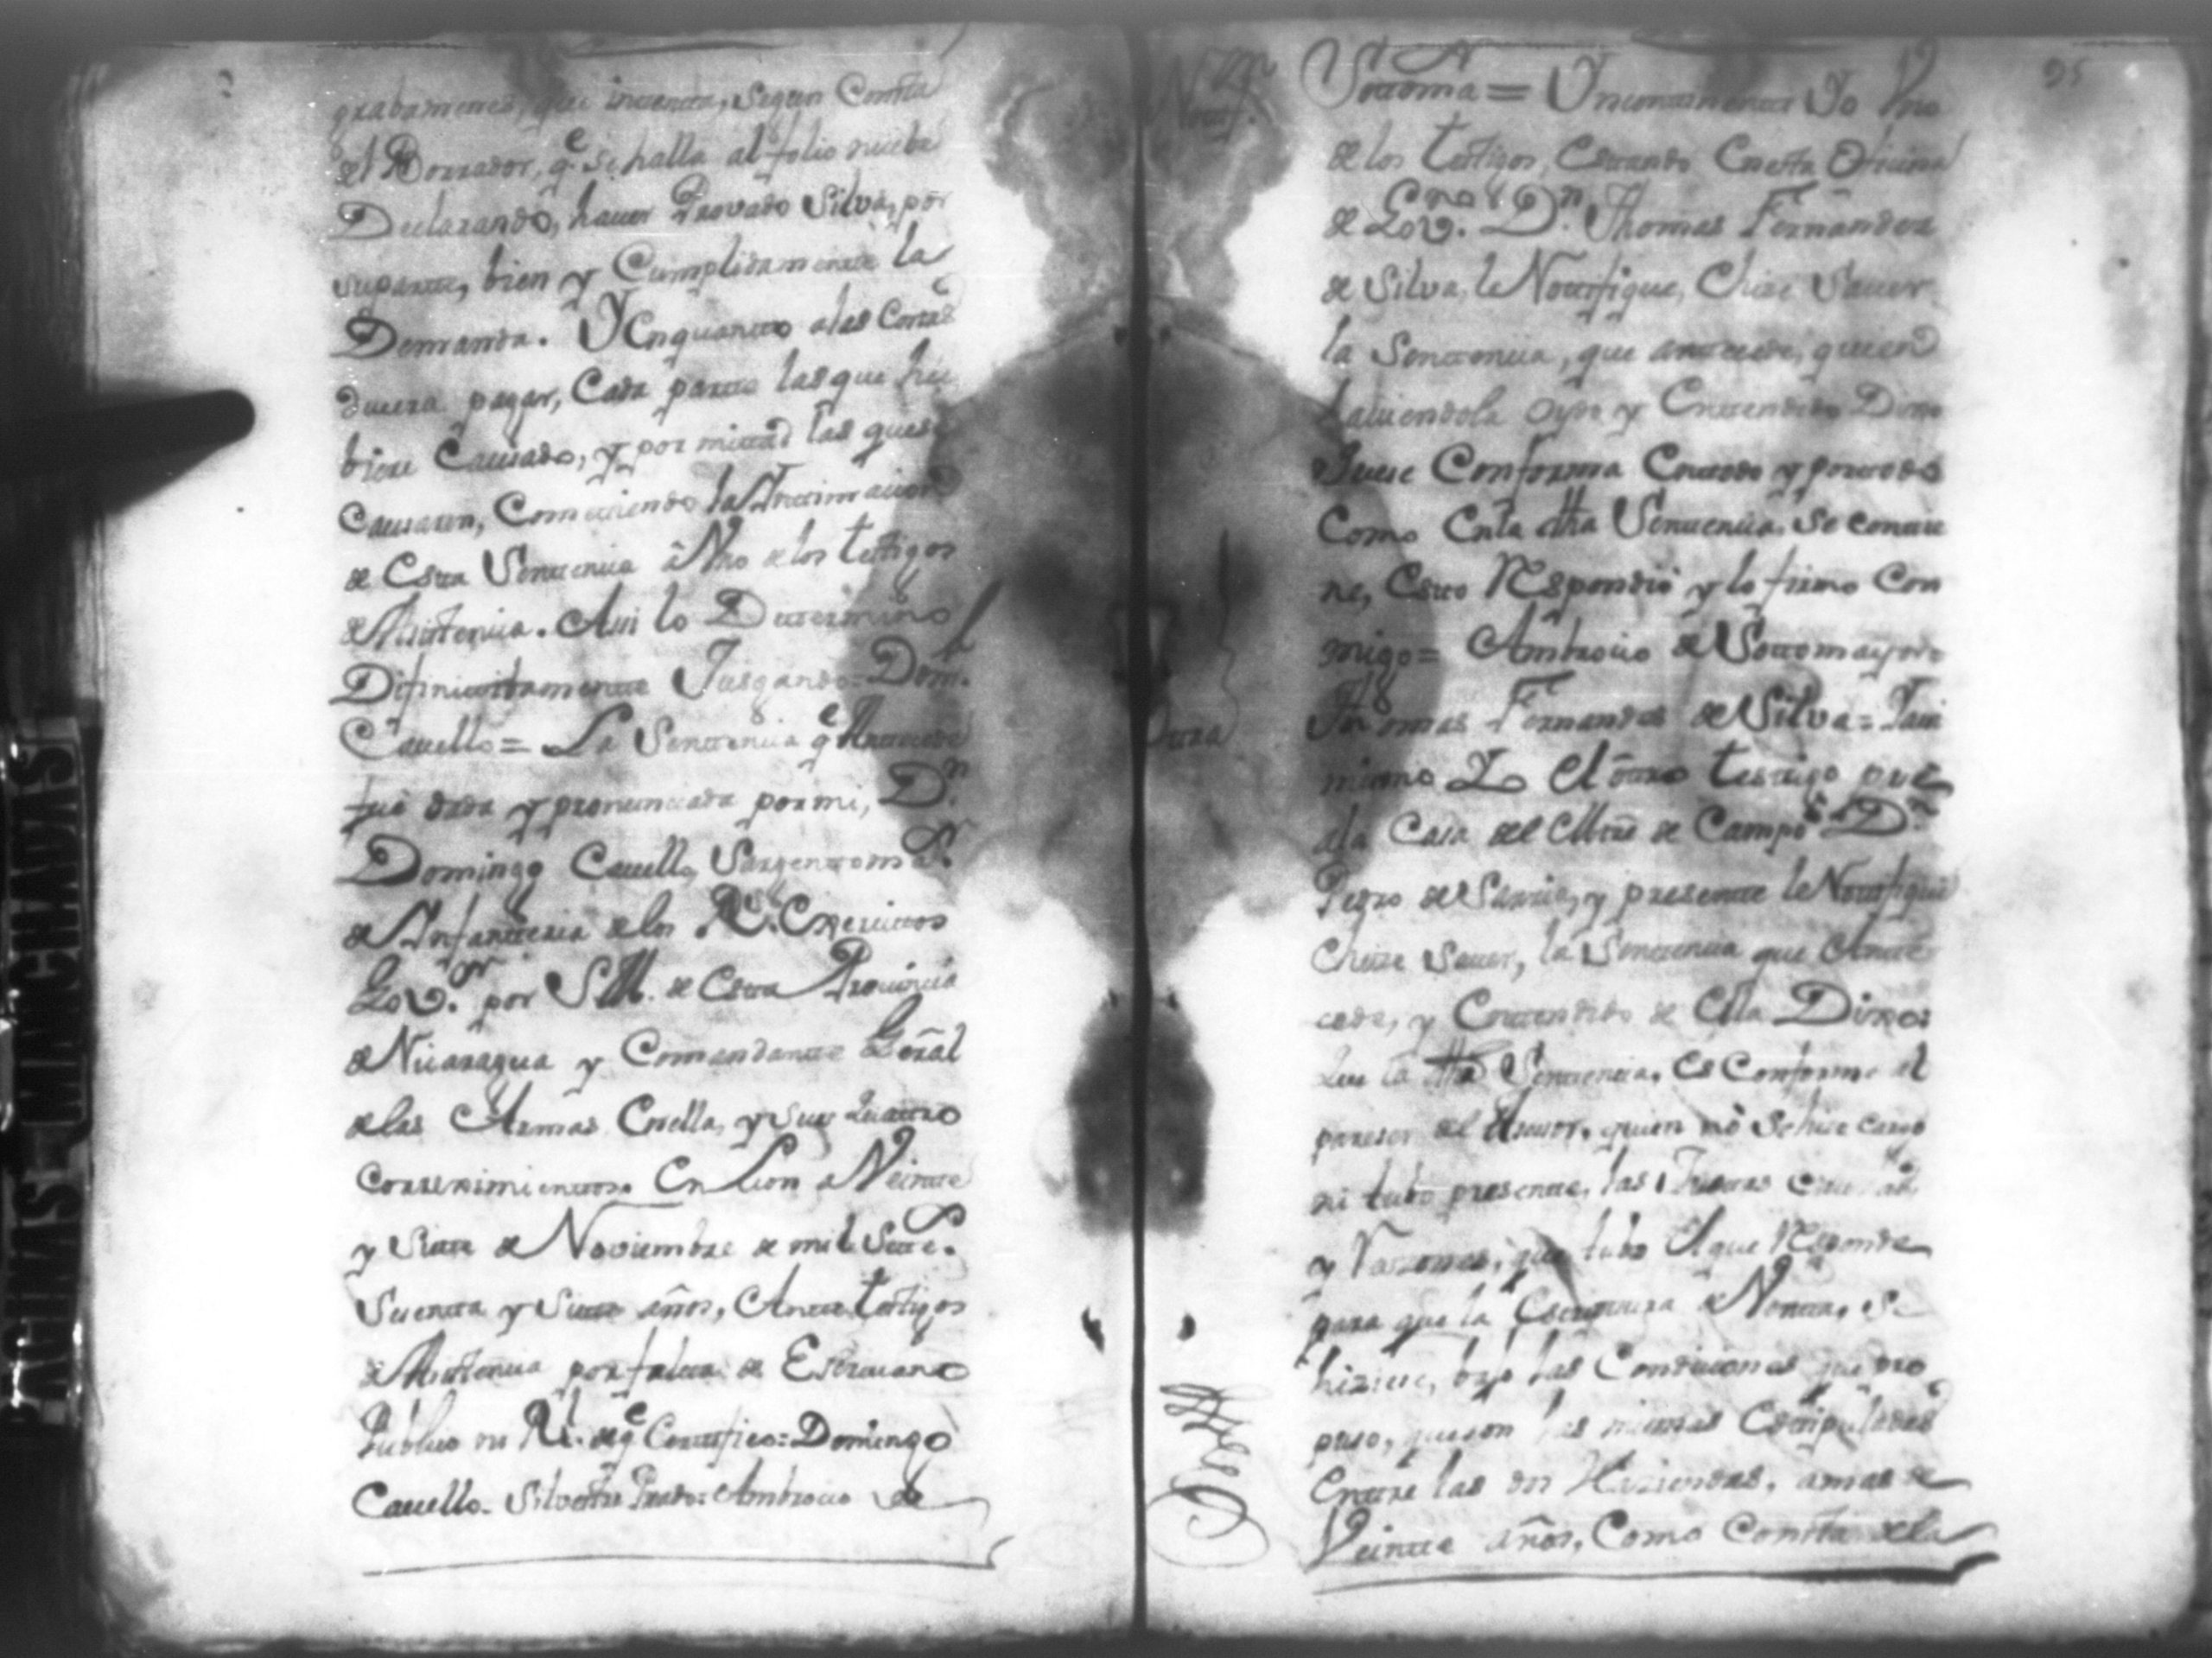 grabamenes, que intenta, segun Consta
del Borrador, q.e se halla al folio nuebe
Declarando, hauer Provado Silva, por
suparte, bien y Cumplidamente la
Demanda. Y Enquanto alas Costas
deuera pagar, Cada parte lasque hu
biere Causado, y por mittad las quese
Causaren, Cometiendo la Intimacion
de Esta Sentencia â Vno delos testigos
de Asistencia. Assi lo Determino
Difinitibamente Jusgando= Dom.
Cauello= La Sentencia q.e Antecede
fué dada y pronunciada pormi, D.n
Domingo Cauello, Sargentom.r
de Infanteria delos R.s Exercitos
Gov.or por S.M. de Esta Provincia
de Nicaragua y Comandante Gen̄al
delas Armas Enella, y sus Quattro
Correximientos. En Leon a Veinte
y Siete de Noviembre de mil Sete.
Suentta y Siete años, Ante testigos
de Asistencia por falta de Escriuano
Publico ni R.l deq.e Certifico= Domingo
Cauello. Silvestre Prado= Ambrocio de
95
Nottif.n
Sottoma.r = Yncontinentte Yo Vno
delos testigos, Estando Enesta Oficina
de Gov.no D.n Thomas Fernandez
de Silva, le Notifique, Ehize Sauer
la Sentencia, que antecede, quien
hauiendola Oydo y Entendido Dixo
Sease Conforma Entodo y portodo
Como Enla dha Sentencia, Se contie
ne, Esto Respondió y lo firmo Con
migo= Ambrocio de Sottomayor=
Thomas Fernandes de Silva= Yassi
Ottra
mismo Yo El ôtro testigo pase
ala Casa del Mtrē de Campo D.n
Pedro de Sarria, y presente le Notifiqué
Ehize Sauer, la Sentencia que Ante
cede, y Entendido de Ella Dixo:
Que la dha Sentencia, Es Conforme al
pareser del Asesor, quien nó Sehizo cargo
ni tubo presente, las
y Razones, que tubo El que Responde
para que la Escriptura de Venta, Se
hiziese, bajo las Condiciones que pro
puso, queson las mismas Estipuladas
Entre las dos Haziendas, amas de
Veinte años, Como Consta dela